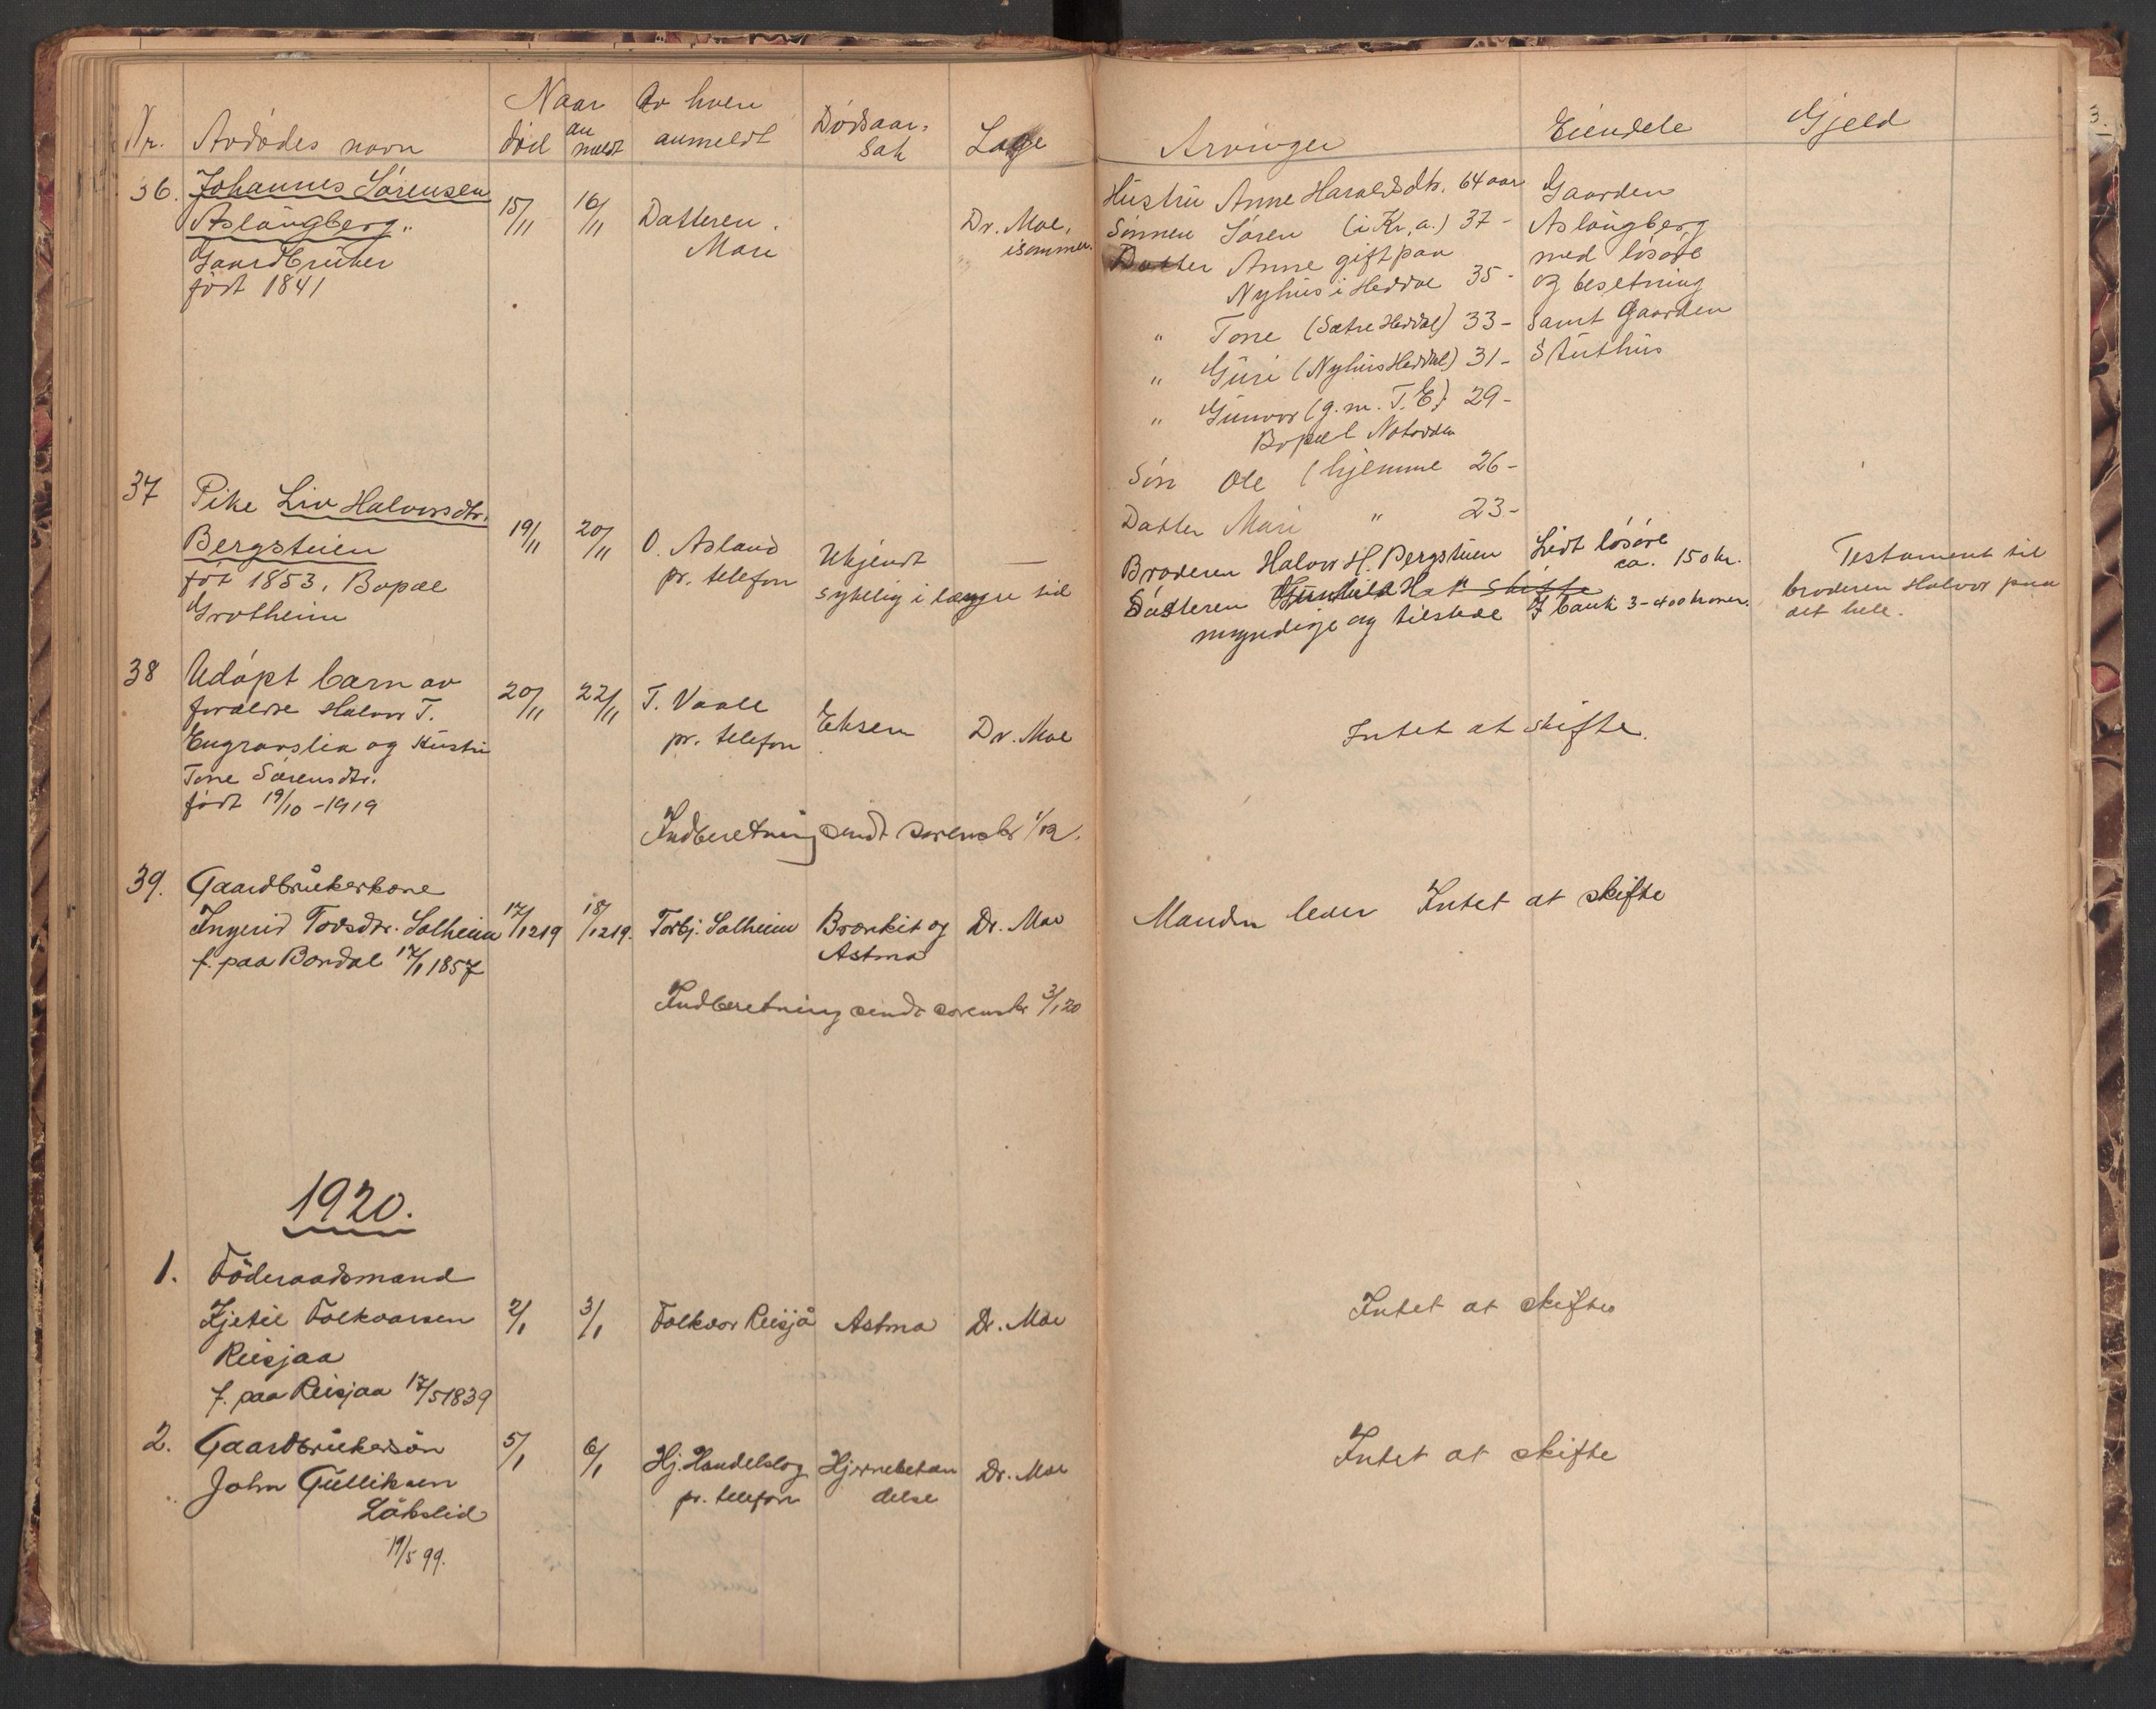 Nr. Avdødes navn Naar død an meldt Av hvem anmeldt Dødsaar. sak Læge
36. Johannes Sørensen 15/11 16/11 Datteren Dr. Moe,
Aslangberg Mari isommer.
Gaardbruker
født 1841
37 Pike Liv Halvorsdtr. 19/11 20/11 O. Asland Ukjendt —
Bergstuen pr. telefon sykelig i længre tid
føt 1853. Bopæl
Grotheim
38 Udøpt barn av 20/11 22/11 T. Vaale Eksem Dr. Moe
forældre Halvor T. pr. telefon
Engravslia og Hustru
Tone Sørensdtr.
født 19/10 - 1919
Indberetning sendt sorenskr 1/12.
39. Gaardbrukerkone
Ingerid Tovsdtr. Solheim 17/12 19 18/12 19. Torbj. Solheim Bronkit og Dr. Moe
f. paa Bondal 17/1 1857 Astma
Indberetning sendt sorenskr 3/1 20
1920.
1. Föderaadsmand
Kjetil Folkvarsen 2/1 3/1 Folkvor Reisjå Astma Dr. Moe
Reisjaa
f. paa Reisjaa 17/5 1839
2. Gaardbrukersön 5/1 6/1 Hj. Handelslag Hjernebetæn Dr. Moe
John Gulliksen pr. telefon delse
Låkslid
19/5 99.
Arvinger Eiendele Gjeld
Hustru Anne Haraldsdtr. 64 aar Gaarden
Sønnen Søren (i Kr.a.) 37 - Aslangberg
Datter Anne gift paa med løsøre
Nyhus i Heddal 35 - og besetning
" Tone (Sætre Heddal) 33 - samt Gaarden
" Guri (Nyhus Heddal) 31 - Stuthus
" Gunvor (g. m. T. E.) 29 -
Bopæl Notodden
Søn Ole (hjemme 26 -
Datter Mari " 23 -
Broderen Halvor H. Bergstuen Lidt løsøre ca. 150 kr. Testament til
Søsteren Gunhild H. I bank 3-400 kroner. broderen Halvor paa
myndige og tilstede det hele.
Intet at skifte.
Manden lever Intet at skifte
Intet at skifte
Intet at skifte